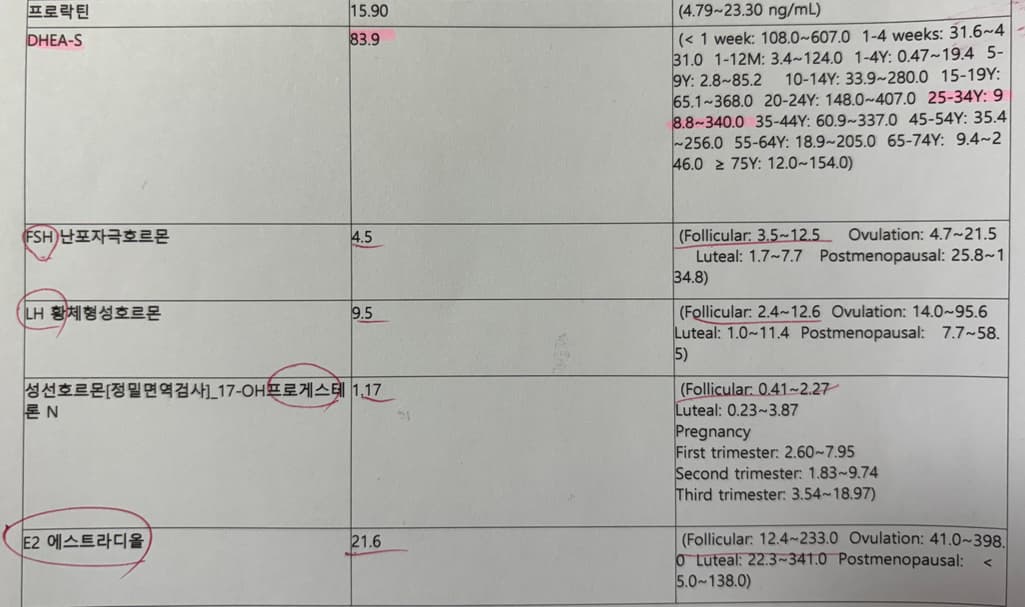 프로락틴 15.90 (4.79~23.30 ng/mL)
DHEA-S 83.9 (< 1 week: 108.0~607.0 1-4 weeks: 31.6~4
31.0 1-12M: 3.4~124.0 1-4Y: 0.47~19.4 5-
9Y: 2.8~85.2 10-14Y: 33.9~280.0 15-19Y:
65.1~368.0 20-24Y: 148.0~407.0 25-34Y: 9
8.8~340.0 35-44Y: 60.9~337.0 45-54Y: 35.4
~256.0 55-64Y: 18.9~205.0 65-74Y: 9.4~2
46.0 ≥ 75Y: 12.0~154.0)
FSH 난포자극호르몬 4.5 (Follicular: 3.5~12.5 Ovulation: 4.7~21.5
Luteal: 1.7~7.7 Postmenopausal: 25.8~1
34.8)
LH 황체형성호르몬 9.5 (Follicular: 2.4~12.6 Ovulation: 14.0~95.6
Luteal: 1.0~11.4 Postmenopausal: 7.7~58.
5)
성선호르몬[정밀면역검사]_17-OH프로게스테 1.17 (Follicular: 0.41~2.27
론 N Luteal: 0.23~3.87
Pregnancy
First trimester: 2.60~7.95
Second trimester: 1.83~9.74
Third trimester: 3.54~18.97)
E2 에스트라디올 21.6 (Follicular: 12.4~233.0 Ovulation: 41.0~398.
0 Luteal: 22.3~341.0 Postmenopausal: <
5.0~138.0)